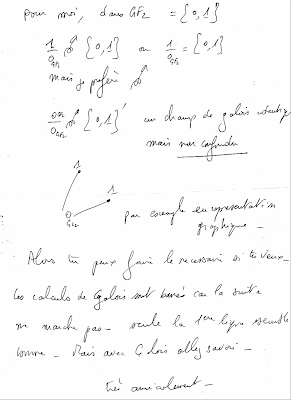 pour moi, dans GF2 = {0,1}
1/0GF2 {0,1} ou 1/0GF2 = {0,1}
mais je préfère
0GF2/0GF2 {0,1}' un champ de galois
mais non confondu
1
1
0GF2
par exemple en représentation
graphique -
Alors tu peux faire le nécessaire si tu veux -
les calculs de Galois sont car la suite
ne marche pas - seule la 1ère ligne semble
bonne - Mais avec Galois allez savoir -
très amicalement -